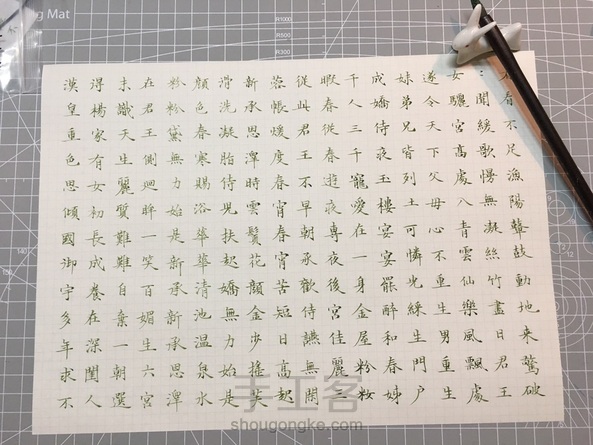 漢皇重色思傾國御宇多年求不
得楊家有女初長成養在深閨人
未識天生麗質難難自棄一朝選
在君王側迴眸一笑百媚生六宮
粉粉黛無力始是新承新承恩澤
顏色春寒賜浴華華清池温泉水
滑洗凝脂侍兒扶起嬌無力始是
新承恩澤時雲鬢花顏金步搖芙
蓉帳煖度春宵春宵苦短日高起
從此君王不早朝承歡侍讌無閑
暇春從春遊夜專夜後宮佳麗三
千人三千寵愛在一身金屋粉粧
成嬌侍夜玉樓宴宴罷醉和春姊
妹弟兄皆列土可憐光綵生門户
遂令天下父母心不重生男重生
女驪宮高處入青雲仙樂風飄處
：聞緩歌慢無凝絲竹盡日君王
看不足漁陽鼙鼓動地来驚破
ng Mat
手工客
shougongke.com